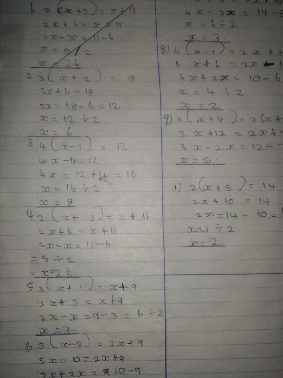 2(x+3) = x+11
2x+6 = x+11
2x-x = 11-6
2. 3(x+2) = 18
3x+6 = 18
3x = 18-6 = 12
x = 12÷2
x = 6
3. 4(x-1) = 12
4x-4 = 12
4x = 12+4 = 16
x = 16÷2
x = 8
4. 2(x+3) = x+11
2x+6 = x+11
2x-x = 11-6
= 5÷2
5. 3(x+1) = x+9
3x+3 = x+9
3x-x = 9-3 = 6÷2
x = 3
6. 5(x-2) = 2x+9
5x-10 = 2x+9
5x+2x = 10-9
4x-3x = 14-8
x = 6÷2
x = 3
8)
x = 4÷2
x = 2
9) 3(x+4) = 2(x+
3x+12 = 2x+
3x-2x = 12-
x = 5
1) 2(x+5) = 14
2x+10 = 14
2x = 14-10 =
x=4÷2
x = 2